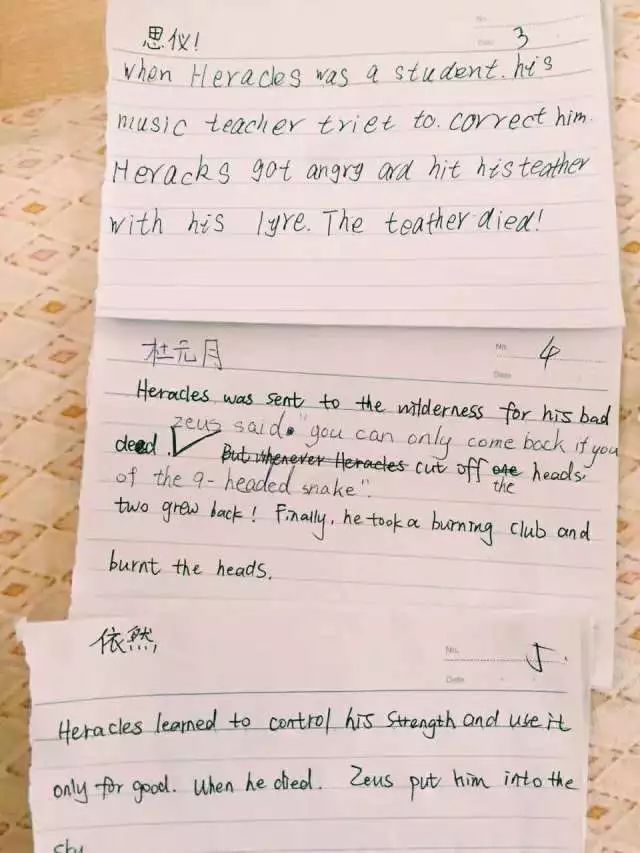 思仪!
No.
Date 3
when Heracles was a student. his
music teacher triet to. correct him.
Heracks got angry ard hit his teather
with his lyre. The teather died!
杜元月
No. 4
Date
Heracles was sent to the wilderness for his bad
zeus said. "you can only come back if you
deed. But whenever Heracles cut off one heads,
of the 9-headed snake". the
two grew back! Finally, he took a burning club and
burnt the heads.
依然,
No. 5.
Date
Heracles learned to control his strength and use it
only for good. When he died. Zeus put him into the
sky